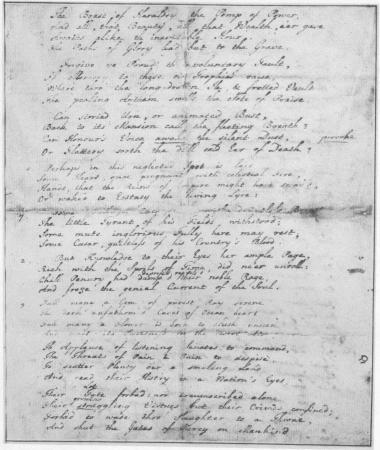 The Boast of Heraldry the Pomp of Power,
And all that Beauty, all that Wealth, e'er gave
Awaits alike th' inevitable Hour.
The Paths of Glory lead but to the Grave.
Forgive ye Proud th' involuntary Fault,
If Memory to these no Trophies raise,
Where thro' the long-drawn Ile, & fretted Vault
The pealing Anthem swells the Note of Praise.
Can storied Urn, or animated Bust,
Back to its Mansion call the fleeting Breath?
Can Honour's Voice awake the silent Dust, provoke
Or Flattery sooth the dull cold Ear of Death?
Perhaps in this neglected Spot is laid
Some Heart, once pregnant with celestial Fire,
Hands, that the Reins of Empire might have sway'd,
Or waked to Ecstasy the living Lyre:
Some Village with dauntless Breast
The little Tyrant of his Fields withstood;
Some mute inglorious Tully here may rest;
Some Caesar, guiltless of his Country's Blood.
But Knowledge to their Eyes her ample Page,
Rich with the Spoils of Time, did ne'er unroll:
Chill Penury had damp'd their noble Rage
depress'd repress'd
And froze the genial Current of the Soul.
Full many a Gem of purest Ray serene
The dark unfathom'd Caves of Ocean bear:
Full many a Flower is born to blush unseen
And its Sweetness on the Air.
Th' Applause of listening Senates to command,
The Threats of Pain & Ruin to despise,
To scatter Plenty o'er a smiling Land
And read their Hist'ry in a Nation's Eyes,
Their Fate forbad: nor circumscribed alone
Lot
Their struggling Virtues but their Crimes confined;
growing
Forbad to wade thro' Slaughter to a Throne,
And shut the Gates of Mercy on Mankind